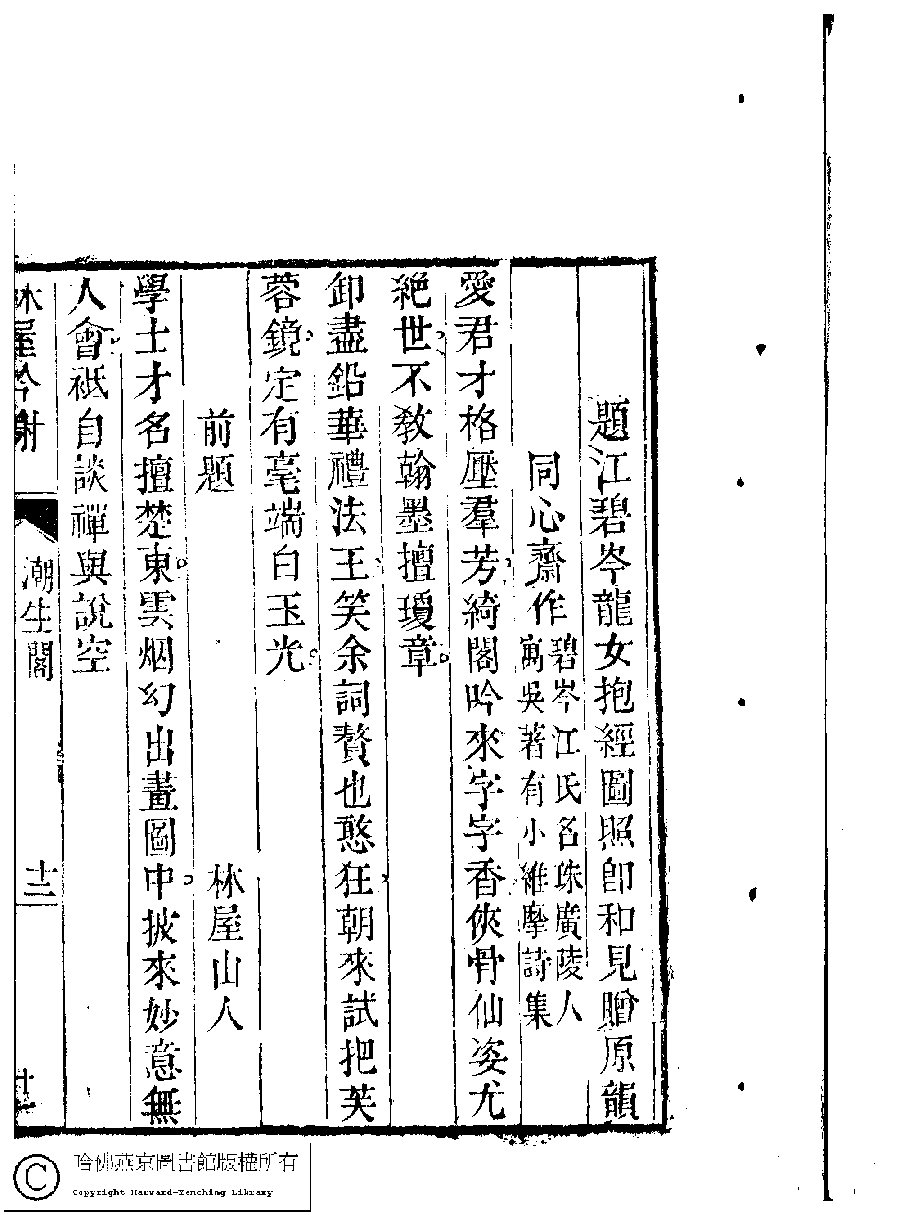 題江碧岑龍女抱經圖照卽和見贈原韻
同心齋作
碧岑江氏名珠廣陵人
寓吳著有小維摩詩集
愛君才格壓羣芳綺閣吟來字字香俠骨仙姿尤
絕世不敎翰墨擅瓊章
卸盡鉛華禮法王笑余詞贅也憨狂朝來試把芙
蓉鏡定有毫端白玉光
前題
林屋山人
學士才名擅楚東雲烟幻出畫圖中披來妙意無
人會祇自談禪與說空
林屋吟榭
潮生閣
十二
哈佛燕京圖書館版權所有
Copyright Harvard-Yenching Library